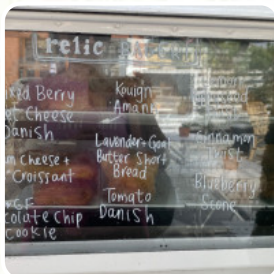 relic
ixed Berry
et Cheese
Danish
Cheese +
Croissant
GF
colate Chip
Cookie
Kouign
Amann
Lavender + Goat
Butter Short
Bread
Tomato
Danish
Cinnamon
Twist
Blueberry
Scone